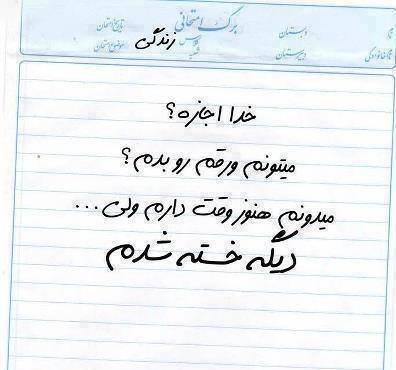 برگ امتحانی
نام
دبستان
تاریخ امتحان
نام خانوادگی
دبیرستان
موضوع امتحان
زندگی
خدا اجازه؟
میتونم ورقم رو بدم؟
میدونم هنوز وقت دارم ولی...
دیگه خسته شدم